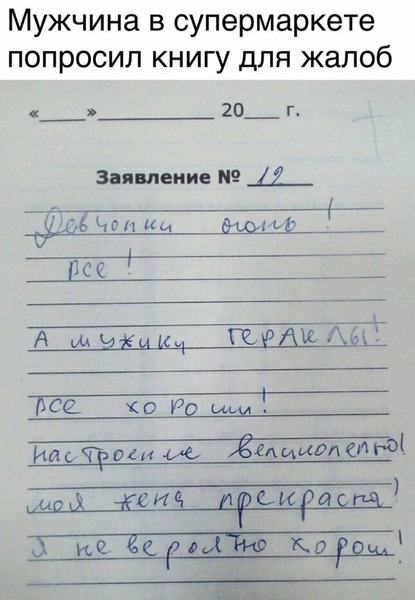 Мужчина в супермаркете
попросил книгу для жалоб
«____»__________ 20___ г.
Заявление № 12
Девчонки огонь!
Все!
А мужики ГЕРАКЛЫ!
Все хороши!
настроение великолепно!
моя жена прекрасна!
Я не вероятно хорош!